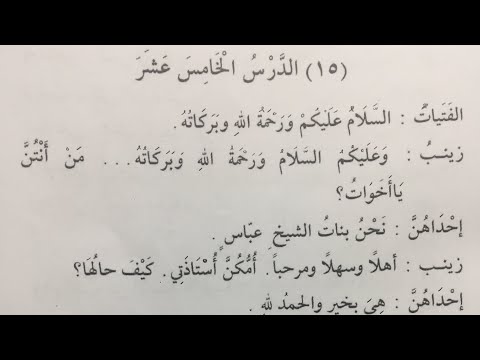 (١٥) الدَّرْسُ الْخَامِسَ عَشَرَ
الفَتَيَاتُ : السَّلَامُ عَلَيْكُمْ وَرَحْمَةُ اللهِ وبَرَكَاتُهُ.
زينبُ : وَعَلَيْكُمُ السَّلَامُ وَرَحْمَةُ اللهِ وَبَرَكَاتُهُ... مَنْ أَنْتُنَّ
يَاأَخَوَاتُ؟
إحْدَاهُنَّ : نَحْنُ بناتُ الشيخِ عبّاسٍ.
زينب : أهلاً وسهلاً ومرحباً. أُمُّكُنَّ أُسْتَاذَتِي. كَيْفَ حالُهَا؟
إحْدَاهُنَّ : هِيَ بخيرٍ والحمدُ للهِ.